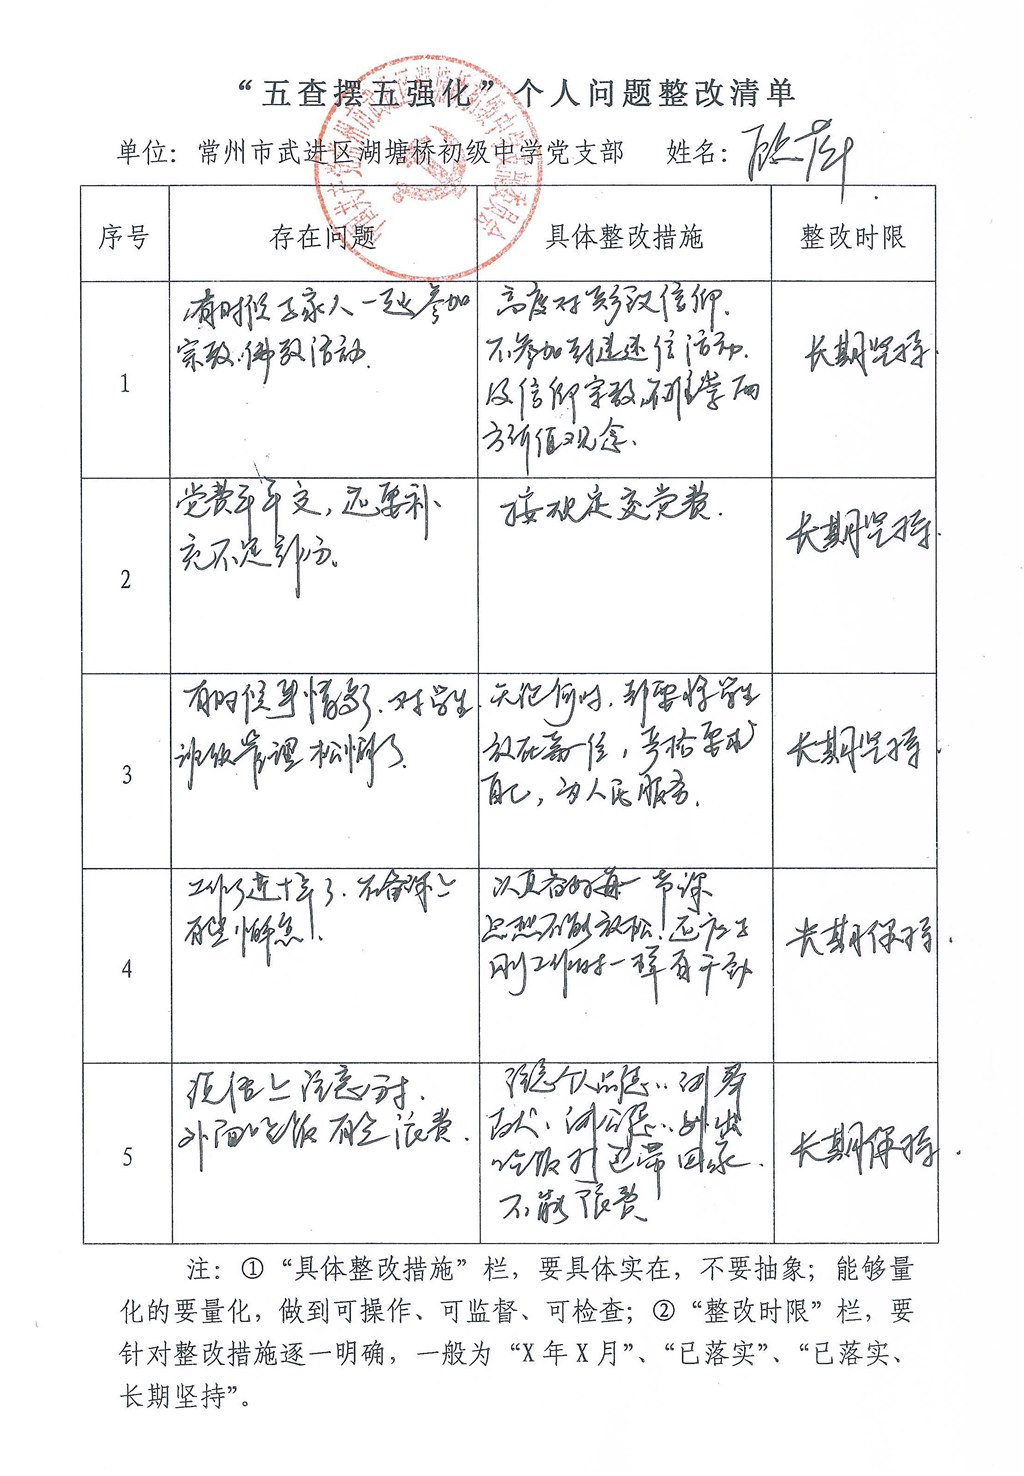 “五查摆五强化”个人问题整改清单
单位：常州市武进区湖塘桥初级中学党支部 姓名：
序号 存在问题 具体整改措施 整改时限
1
有时候与家人一起参加
宗教.佛教活动.
高度对党政信仰.
不参加封建迷信活动.
及信仰宗教,不推崇西
方价值观念.
长期坚持.
2
党费年年交，还要补
充不足部分。
按规定交党费.
长期坚持.
3
有时候事情多了.对学生.
班级管理松懈了.
无论何时.都要将学生
放在第一位，严格要求
自己，为人民服务.
长期坚持.
4
工作了近十年了.在备课上
有些懈怠!.
认真备好每一节课
思想不能放松!还应与
刚工作时一样有干劲
长期保持.
5
外面吃饭有些浪费.
注意个人品德..
吃饭打包带回家.
不能浪费
长期保持.
注：①“具体整改措施”栏，要具体实在，不要抽象；能够量
化的要量化，做到可操作、可监督、可检查；②“整改时限”栏，要
针对整改措施逐一明确，一般为“X年X月”、“已落实”、“已落实、
长期坚持”。